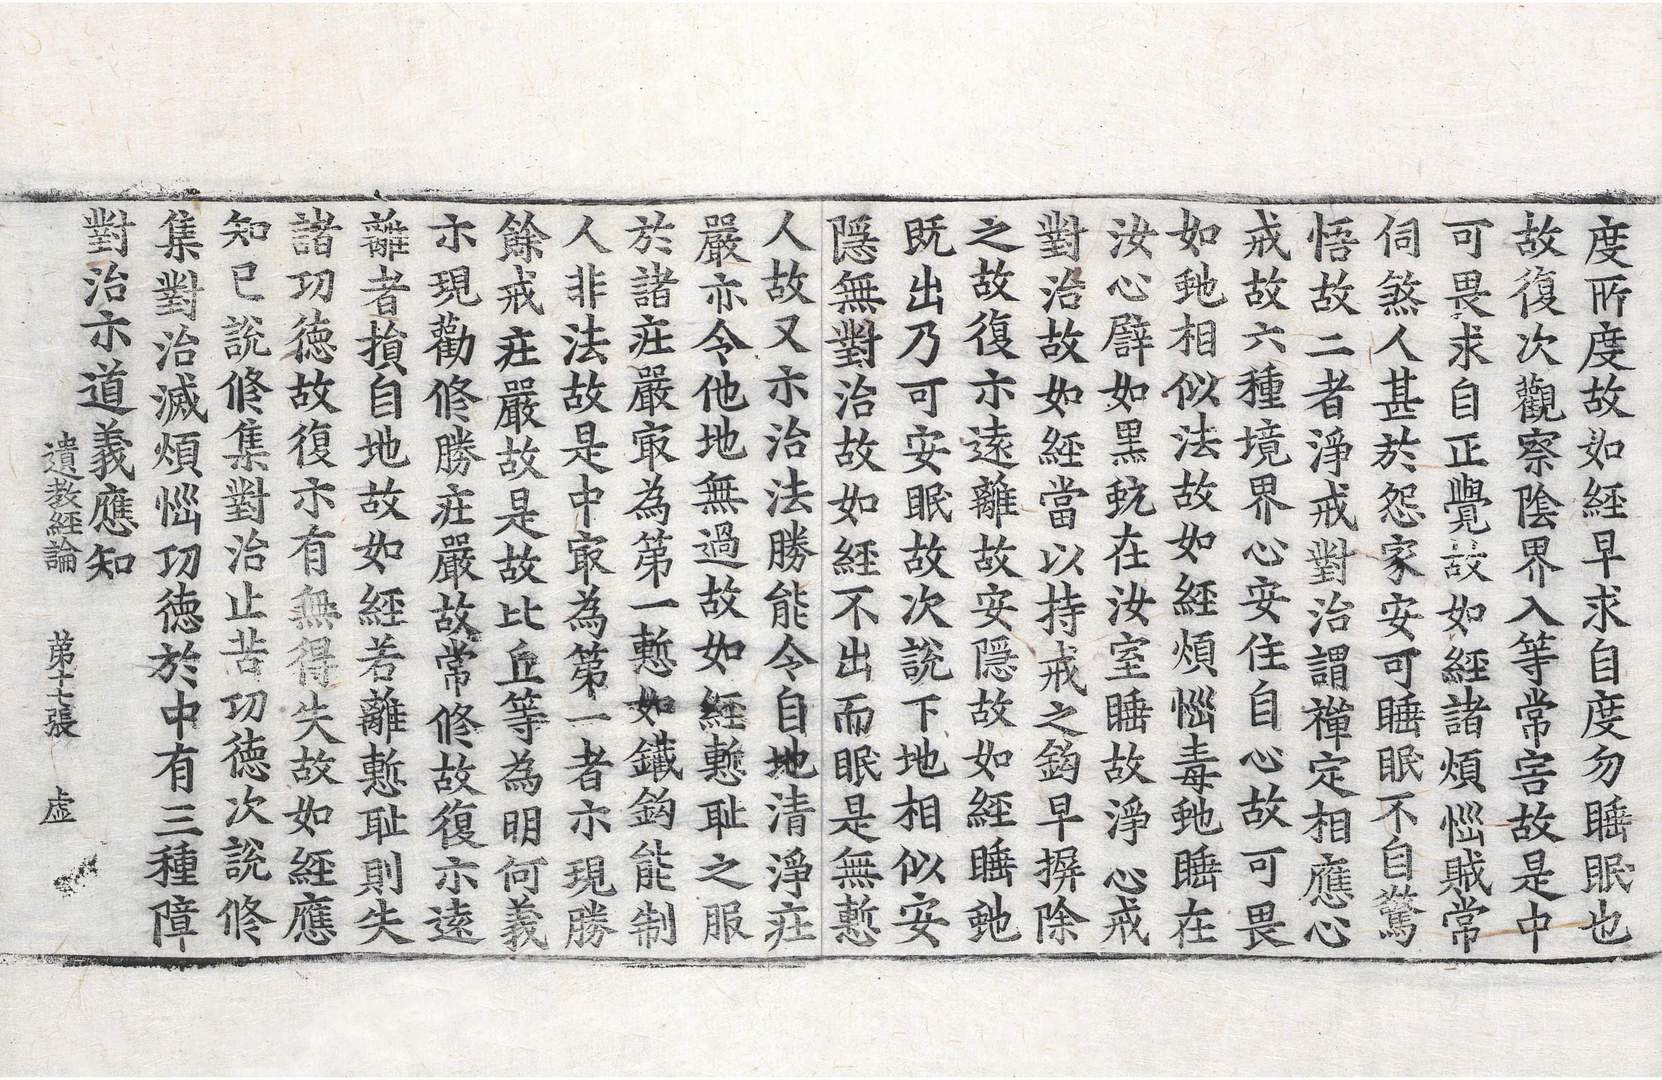 度所度故如經早求自度勿睡眠也
故復次觀察陰界入等常害故是中
可畏求自正覺故如經諸煩惱賊常
伺煞人甚於怨家安可睡眠不自驚
悟故二者淨戒對治謂禪定相應心
戒故六種境界心安住自心故可畏
如虵相似法故如經煩惱毒虵睡在
汝心譬如黑蚖在汝室睡故淨心戒
對治故如經當以持戒之鈎早摒除
之故復示遠離故安隱故如經睡虵
既出乃可安眠故次說下地相似安
隱無對治故如經不出而眠是無慙
人故又示治法勝能令自地清淨莊
嚴亦令他地無過故如經慙耻之服
於諸莊嚴㝡為第一慙如鐵鈎能制
人非法故是中㝡為第一者示現勝
餘戒莊嚴故是故比丘等為明何義
示現勸修勝莊嚴故常修故復示遠
離者損自地故如經若離慙耻則失
諸功德故復示有無得失故如經應
知已說修集對治止苦功德次說修
集對治滅煩惱功德於中有三種障
對治示道義應知
遺教經論 第十七張 虛